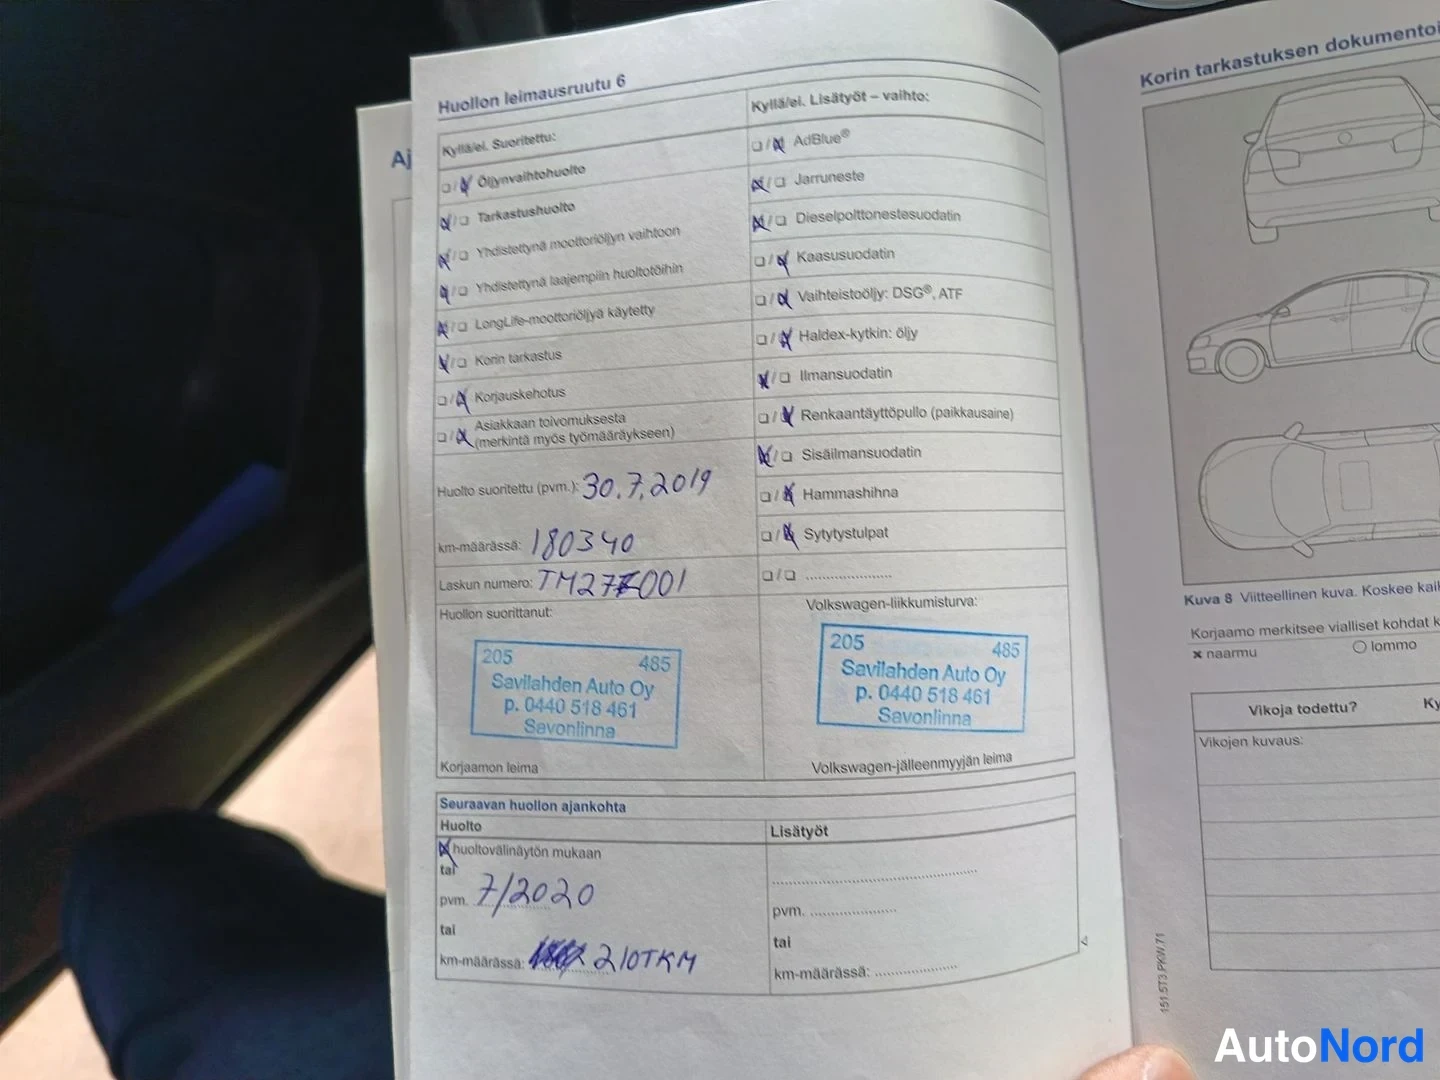 Huollon leimausruutu 6
Kyllä/ei. Suoritettu:
Öljynvaihtohuolto
Tarkastushuolto
Yhdistettynä moottoriöljyn vaihtoon
Yhdistettynä laajempiin huoltotöihin
LongLife-moottoriöljyä käytetty
Korin tarkastus
Korjauskehotus
Asiakkaan toivomuksesta
(merkintä myös työmääräykseen)
Huolto suoritettu (pvm.): 30.7.2019
km-määrässä: 180340
Laskun numero:
Huollon suorittanut:
205 485
Savilahden Auto Oy
p. 0440 518 461
Savonlinna
Korjaamon leima
Kyllä/ei. Lisätyöt – vaihto:
AdBlue®
Jarruneste
Dieselpolttonestesuodatin
Kaasusuodatin
Vaihteistoöljy: DSG®, ATF
Haldex-kytkin: öljy
Ilmansuodatin
Renkaantäyttöpullo (paikkausaine)
Sisäilmansuodatin
Hammashihna
Sytytystulpat
Volkswagen-liikkumisturva:
205 485
Savilahden Auto Oy
p. 0440 518 461
Savonlinna
Volkswagen-jälleenmyyjän leima
Seuraavan huollon ajankohta
Huolto
huoltovälinäytön mukaan
tai
pvm. 7/2020
tai
km-määrässä: 210TKM
Lisätyöt
pvm.
tai
km-määrässä:
Aj
Korin tarkastuksen dokumentoi
Kuva 8 Viitteellinen kuva. Koskee kaik
Korjaamo merkitsee vialliset kohdat k
x naarmu
lommo
Vikoja todettu? Ky
Vikojen kuvaus:
151.5T3.PKW.71
AutoNord